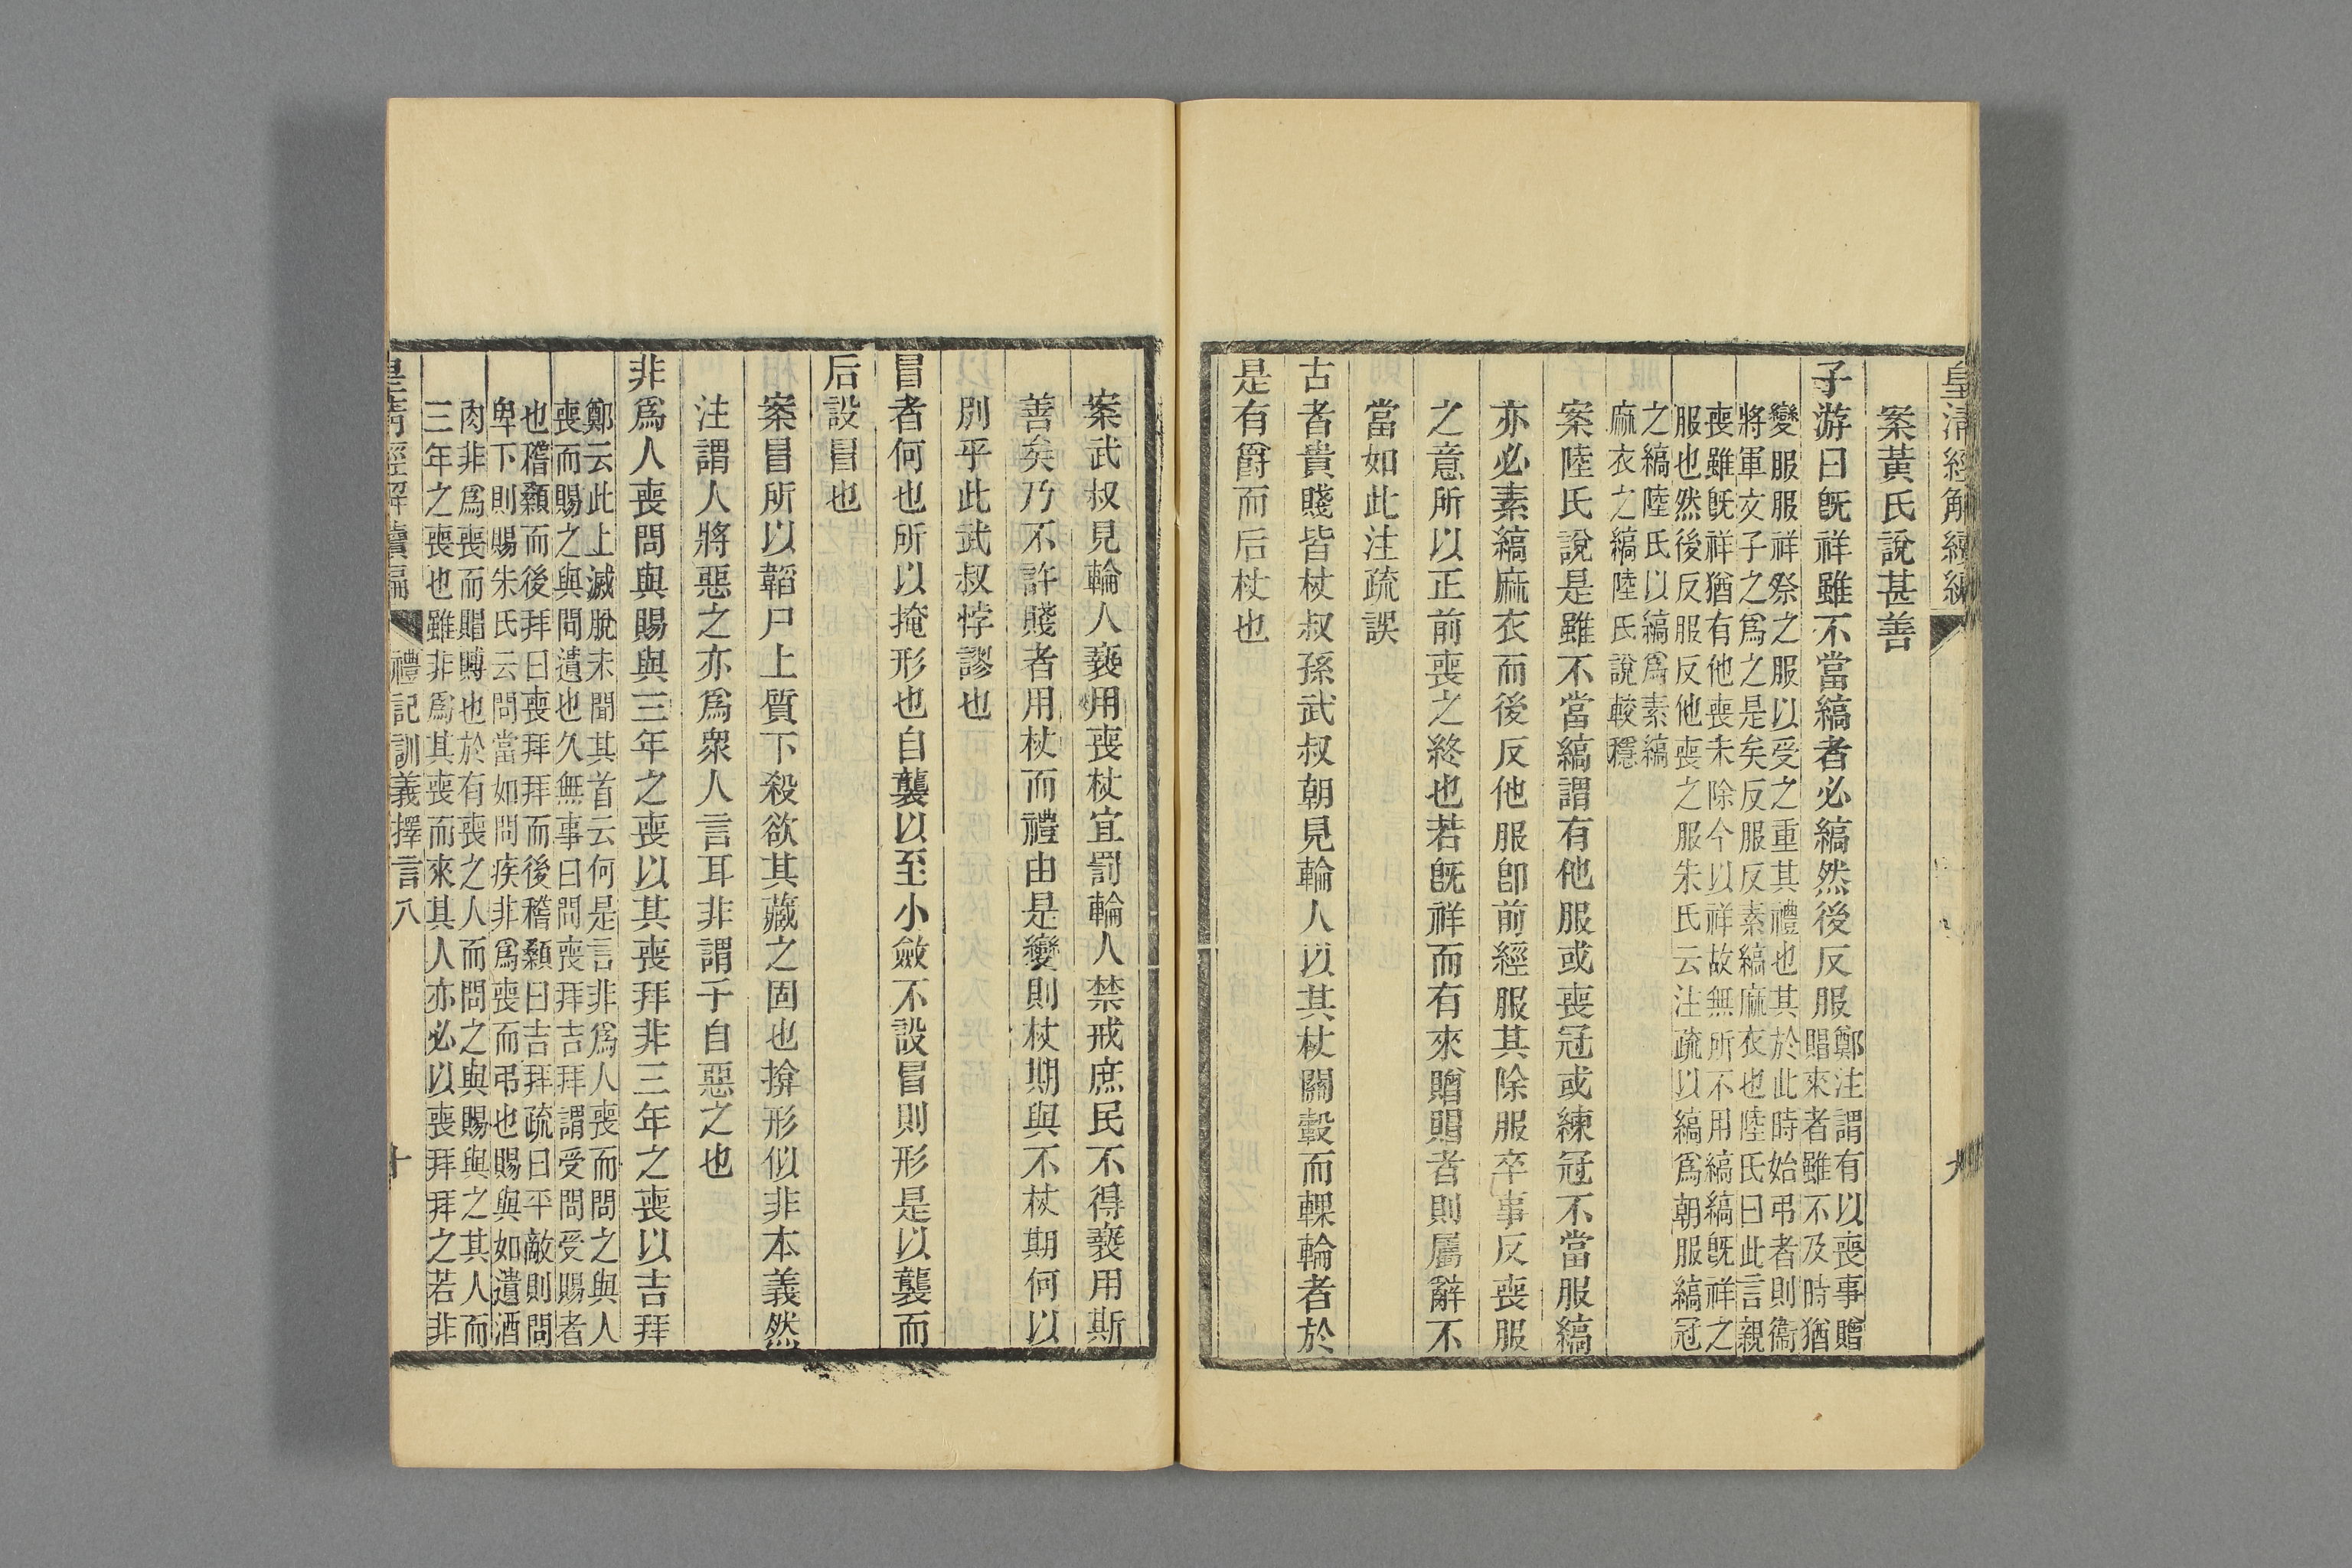 皇清經解續編
九
案黃氏說甚善
子游曰旣祥雖不當縞者必縞然後反服鄭注謂有以喪事贈
賵來者雖不及時猶
變服服祥祭之服以受之重其禮也其於此時始弔者則衞
將軍文子之爲之是矣反服反素縞麻衣也陸氏曰此言親
喪雖旣祥猶有他喪未除今以祥故無所不用縞縞旣祥之
服也然後反服反他喪之服朱氏云注疏以縞爲朝服縞冠
之縞陸氏以縞爲素縞
麻衣之縞陸氏說較穩
案陸氏說是雖不當縞謂有他服或喪冠或練冠不當服縞
亦必素縞麻衣而後反他服卽前經服其除服卒事反喪服
之意所以正前喪之終也若旣祥而有來贈賵者則屬辭不
當如此注疏誤
古者貴賤皆杖叔孫武叔朝見輪人以其杖關轂而輠輪者於
是有爵而后杖也
案武叔見輪人褻用喪杖宜罰輪人禁戒庶民不得褻用斯
善矣乃不許賤者用杖而禮由是變則杖期與不杖期何以
別乎此武叔悖謬也
冒者何也所以掩形也自襲以至小斂不設冒則形是以襲而
后設冒也
案冒所以韜尸上質下殺欲其藏之固也揜形似非本義然
注謂人將惡之亦爲衆人言耳非謂子自惡之也
非爲人喪問與賜與三年之喪以其喪拜非三年之喪以吉拜
鄭云此上滅脫未聞其首云何是言非爲人喪而問之與人
喪而賜之與問遺也久無事曰問喪拜吉拜謂受問受賜者
也稽顙而後拜曰喪拜拜而後稽顙曰吉拜疏曰平敵則問
卑下則賜朱氏云問當如問疾非爲喪而弔也賜與如遺酒
肉非爲喪而賵賻也於有喪之人而問之與賜與之其人而
三年之喪也雖非爲其喪而來其人亦必以喪拜拜之若非
皇清經解續編
禮記訓義擇言八
十